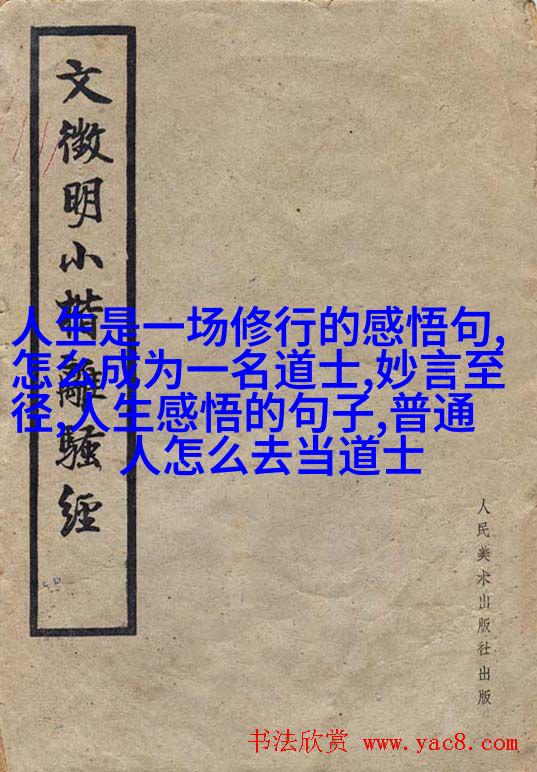 文徵明小楷離騷經
人生是一场修行的感悟句,
怎么成为一名道士,妙言至
径,人生感悟的句子,普通
人怎么去当道士
人民美术出版社出版
书法欣赏 www.yac8.com